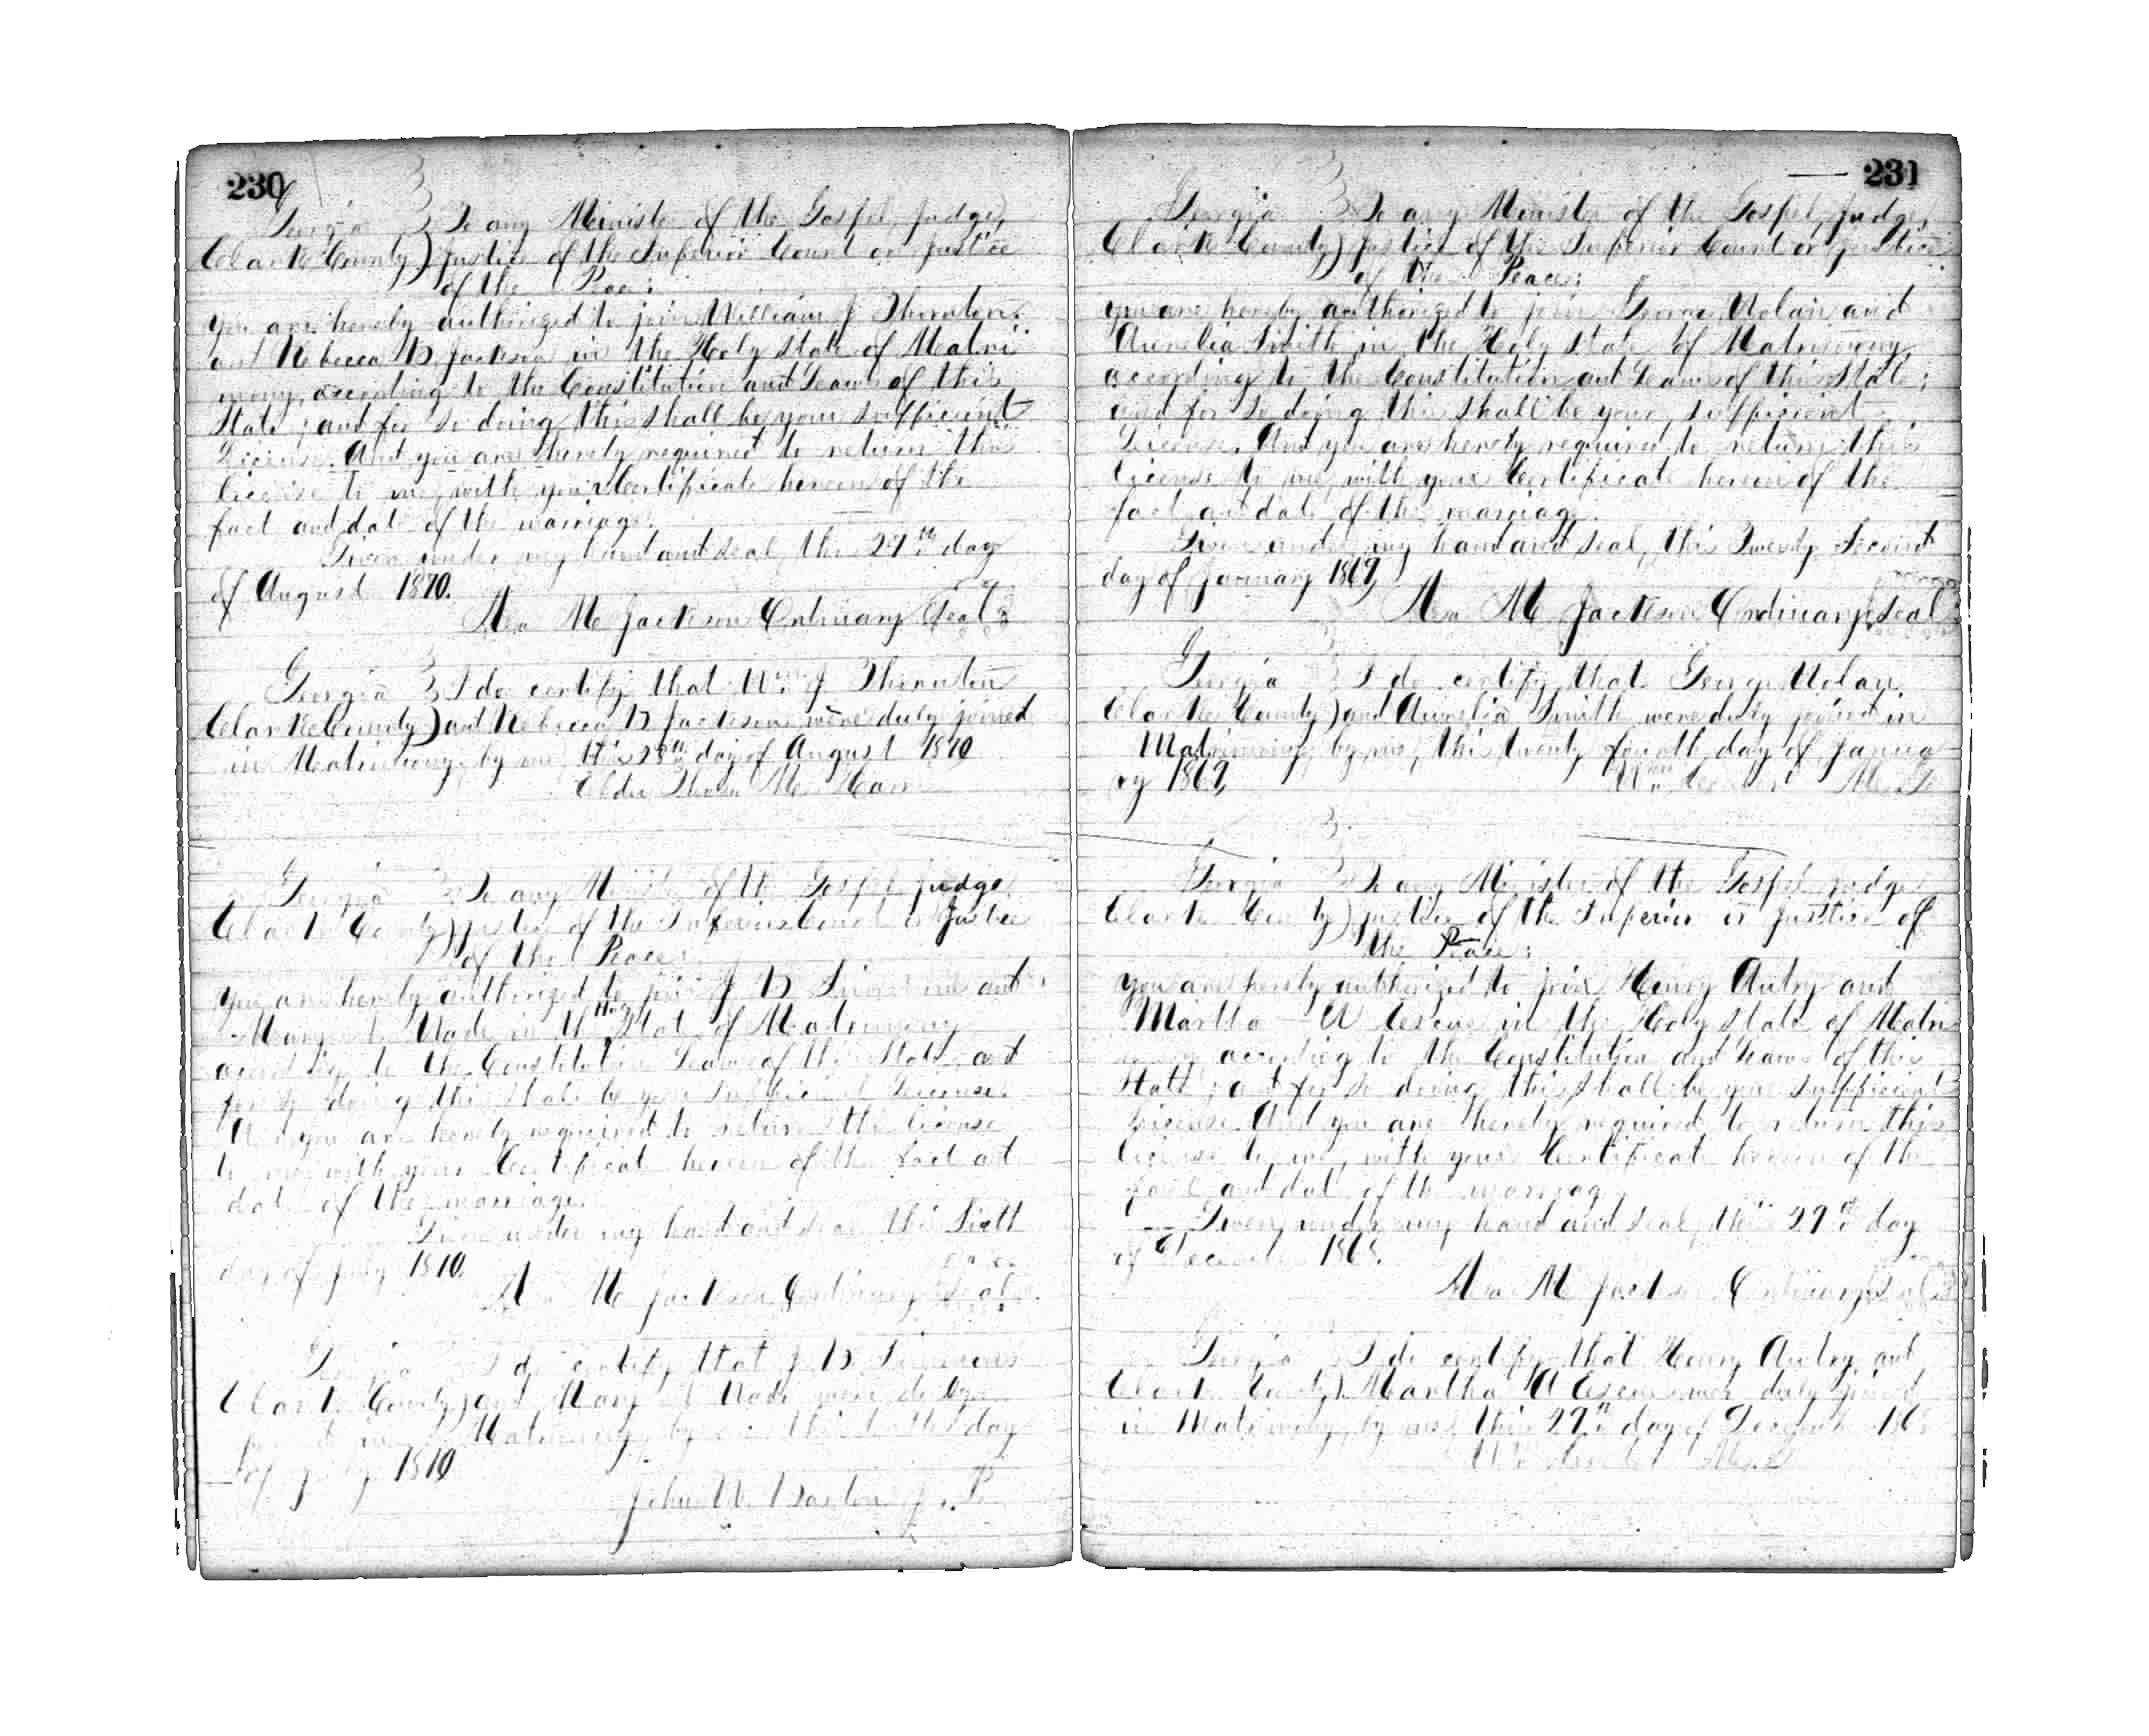 230
Georgia } To any Minister of the Gospel, Judge,
Clarke County } Justice of the Inferior Court or Justice
of the Peace:
You are hereby authorized to join William J Thornton
and Rebecca B Jackson in the Holy state of Matri
mony, according to the Constitution and Laws of this
State; and for so doing this shall be your sufficient
License. And you are hereby required to return this
license to me, with your Certificate hereon of the
fact and date of the marriage.
Given under my hand and seal, this 27th day
of August 1870.
Asa M Jackson Ordinary Seal
Georgia } I do certify that Wm J Thornton
Clarke County } and Rebecca B Jackson were duly joined
in Matrimony by me, this 28th day of August 1870
Elder
Georgia } To any Minister of the Gospel, Judge,
Clarke County } Justice of the Inferior Court or Justice
of the Peace:
You are hereby authorized to join J B and
Mary in the Holy State of Matrimony
according to the Constitution Laws of this State, and
for so doing this shall be your sufficient License.
And you are hereby required to return this license
to me with your Certificate hereon of the fact and
date of the marriage.
Given under my hand and seal this Sixth
day of July 1870.
Asa M Jackson Ordinary Seal
Georgia } I do certify that J B
Clarke County } and Mary were duly
in Matrimony by me this day
of July 1870
John W J. P.
231
Georgia } To any Minister of the Gospel, Judge,
Clarke County } Justice of the Inferior Court or Justice
of the Peace:
you are hereby authorized to join George Nolan and
Aurelia Smith in the Holy state of Matrimony
according to the Constitution and Laws of this State;
and for so doing this shall be your sufficient
License. And you are hereby required to return this
license to me, with your Certificate hereon of the
fact and date of the marriage.
Given under my hand and seal, this Twenty Second
day of January 1869,
Asa M Jackson Ordinary Seal
Georgia } I do certify that George Nolan
Clarke County } and Aurelia Smith were duly joined in
Matrimony by me, this twenty fourth day of Janua
ry 1869,
Georgia } To any Minister of the Gospel, Judge
Clarke County } Justice of the Inferior or Justice of
the Peace:
you are hereby authorized to join Henry Autry and
Martha A in the Holy state of Matri
mony according to the Constitution and Laws of this
State; and for so doing this shall be your sufficient
license. And you are hereby required to return this
license to me, with your Certificate hereon of the
fact and date of the marriage
Given under my hand and seal, this day
of December 186
Asa M Jackson Ordinary Seal
Georgia } I do certify that Henry Autry and
Clarke County } Martha A were duly joined
in Matrimony by me, this day of